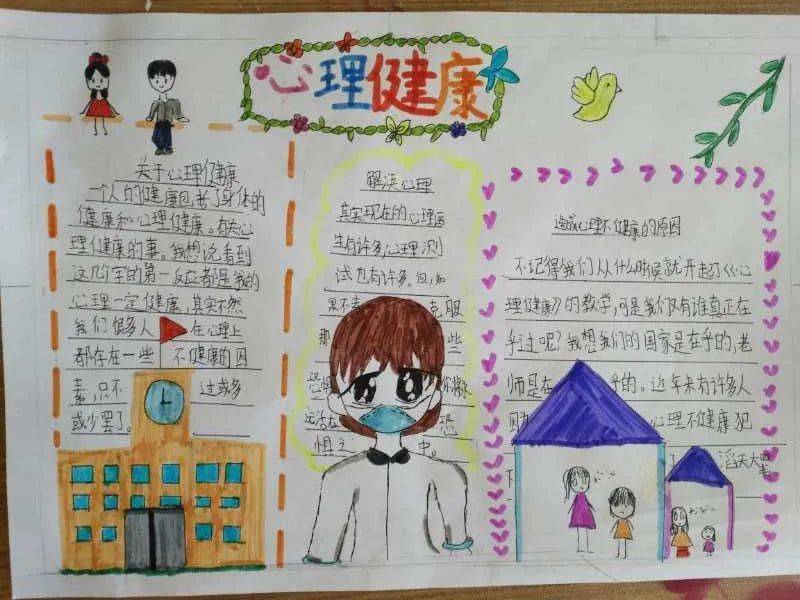 心理健康
关于心理健康
一个人的健康包括了身体的
健康和心理健康。有关心
理健康的事。我想说看到
这几个字的第一反应都是我的
心理一定健康,其实不然
我们很多人 在心理上
都存在一些 不健康的因
素 只不 过或多
或少罢了。
解决心理
其实现在的心理医
生有许多,心理测
试也有许多。但,如
果不去 克服
那 些
恐惧 你将永
远活在 恐
惧之 中。
造成心理不健康的原因
不记得我们从什么时候就开走了《心
理健康》的教学,可是我们又有谁真正在
乎过呢?我想我们的国家是在乎的,老
师是在 乎的。近年来有许多人
因 心理不健康犯
下 了 滔天大罪